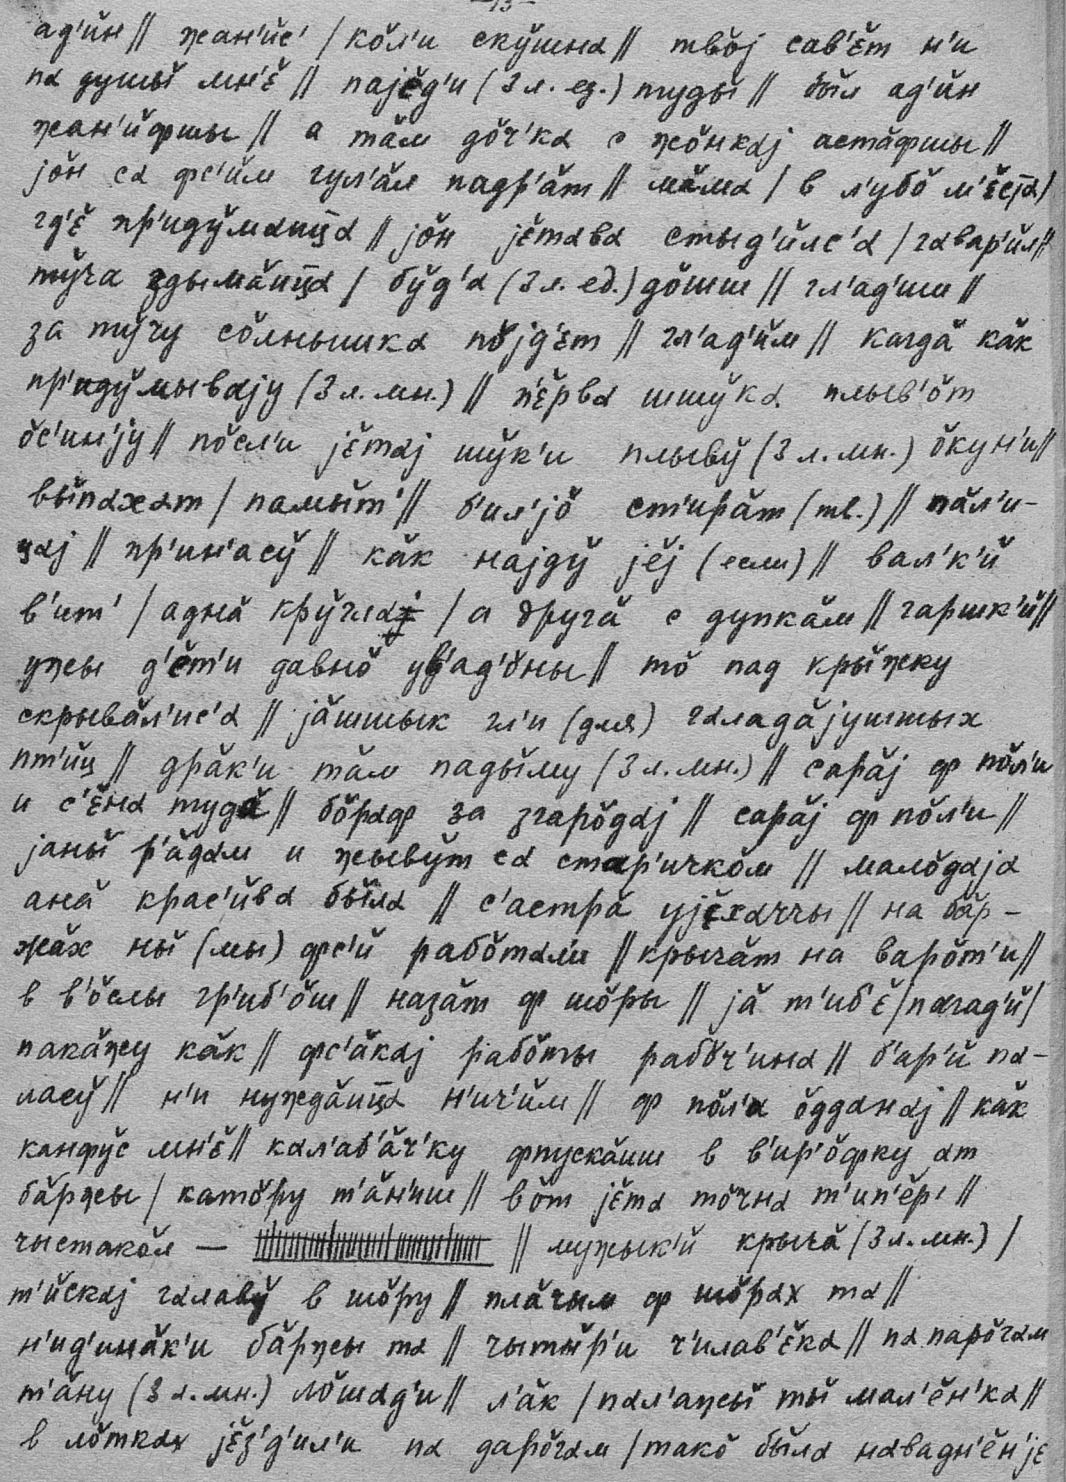 -13-
ад'и́н // жан'и́с' / ко́л'и ску́шнα // тво́j сав'е́т н'и
пα душы́ мн'е́ // паjе́д'и (3 л. ед.) туды́ // бы́л ад'и́н
жан'и́фшы // а та́м до́ч'кα с жо́нкαj аста́фшы //
jо́н сα фс'и́м гул'а́л падр'а́т // ма́мα / в л'убо́ м'е́стα /
гд'е́ пр'иду́мαиццα // jо́н jе́тαвα стыд'и́лс'α / гαвар'и́л //
ту́ча здыма́иццα / бу́д'α (3 л. ед.) до́шш // гл'ад'и́ш //
за ту́чу со́лнышкα поjд'е́т // гл'ад'и́м // кагда́ ка́к
пр'иду́мывαjу (3 л. мн.) // п'е́рвα шшу́кα плыв'о́т
о́с'ин'jу // по́сл'и jе́тαj шу́к'и плыву́ (3 л. мн.) о́кун'и //
вы́пαхαт / памы́т' // б'ил'jо́ ст'ира́т (тв.) // па́л'и-
цαj // пр'ин'асу́ // ка́к наjду́ jе́j (если) // вал'к'и́
в'ит' / адна́ кру́глαj / а друга́ с дупка́м // гаршк'и́ //
ужы д'е́т'и давно́ ув'ад'о́ны // то́ пад кры́жку
скрыва́л'ис'α // jа́шшык гл'и (для) гαлада́jушшых
пт'и́ц // дра́к'и та́м пады́му (3 л. мн.) // сара́j ф по́л'и
и с'е́на туда́ // бо́рαф за згаро́дαj // сара́j ф по́л'и //
jаны́ р'а́дαм и жыву́т сα стар'ичко́м // мало́дαjα
ана́ крас'и́вα бы́лα // с'астра́ уjе́хαччы // на ба́р-
жа́х ны́ (мы) фс'и́ рабо́тαл'и // крыча́т на варо́т'и //
в в'о́слы гр'иб'о́ш // наза́т ф шо́ры // jа́ т'иб'е́ / пαгад'и́ /
пака́жу ка́к // фс'а́кαj рабо́ты рабо́ч'инα // б'ар'и́ пα-
ласу́ // н'и нужда́иццα н'ич'и́м // ф по́л'α о́ддαнαj // ка́к
канфу́с мн'е́ // кαл'αб'а́ч'ку фпуска́иш в в'ир'о́фку αт
ба́ржы / като́ру т'а́н'иш // во́т jе́тα то́чнα т'ип'е́р' //
чыстако́л — // мужык'и́ крыча́ (3 л. мн.) /
т'и́скαj гαлаву́ в шо́ру // пла́чым ф шо́рαх тα //
н'ид'ина́к'и ба́ржы тα // чыты́р'и ч'илав'е́кα // пα паро́гαм
т'а́ну (3 л. мн.) ло́шαд'и // л'а́к / пαл'ажы́ ты́ мал'е́н'кα //
в ло́ткαх jе́з'д'ил'и пα даро́гαм / тако́ бы́лα нαвадн'е́н'jе